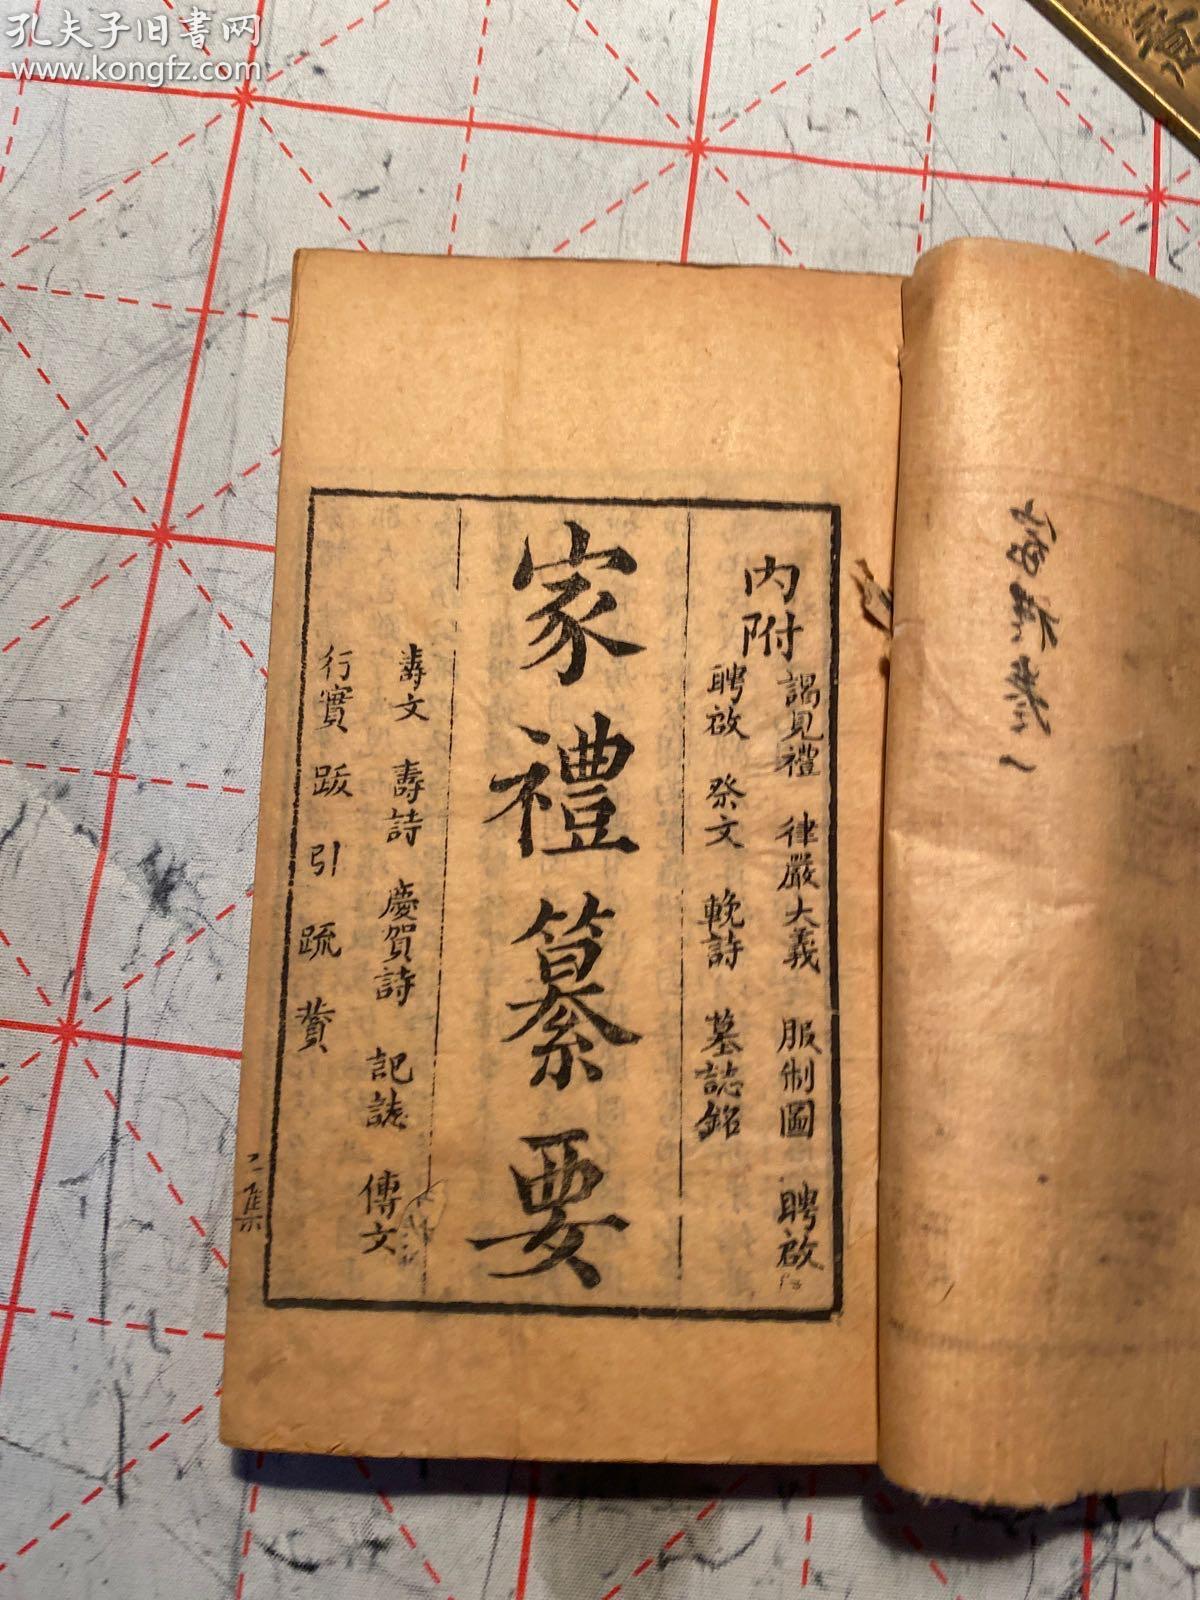 孔夫子旧書网
www.kongfz.com
内附
謁見禮 律嚴大義 服制圖 聘啟
聘啟 祭文 輓詩 墓誌銘
家禮纂要
壽文 壽詩 慶賀詩 記誌 傳文
行實 跋 引 疏 贊
二集